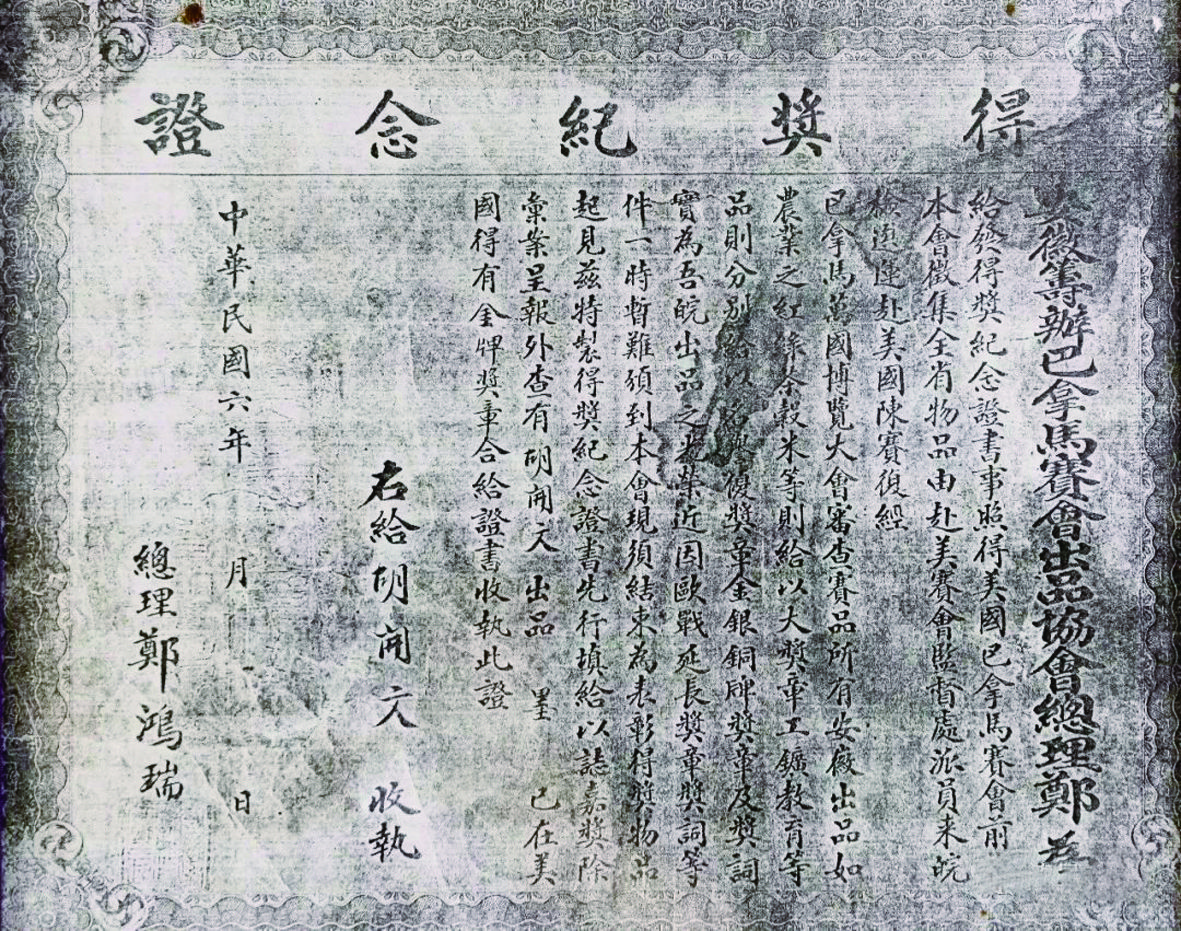 得獎紀念證
安徽籌辦巴拿馬賽會出品協會總理鄭 為
給發得獎紀念證書事照得美國巴拿馬賽會前
本會徵集全省物品由赴美賽會監督處派員來皖
檢選運赴美國陳賽復經
巴拿馬萬國博覽大會審查賽品所有安徽出品如
農業之紅綠茶穀米等則給以大獎章工鑛教育等
品則分別給以名譽優獎章金銀銅牌獎章及獎詞
實為吾皖出品之光榮近因歐戰延長獎章獎詞等
件一時暫難頒到本會現須結束為表彰得獎物品
起見茲特製得獎紀念證書先行填給以誌嘉獎除
彙案呈報外查有胡開文出品 墨 已在美
國得有金牌獎章合給證書收執此證
右給胡開文 收執
中華民國六年 月 日
總理鄭鴻瑞